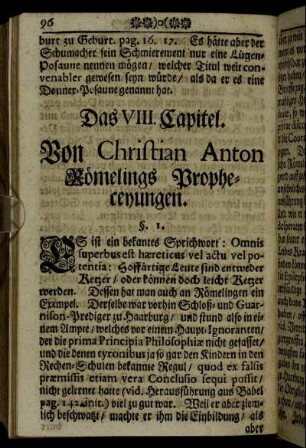 96
burt zu Geburt. pag. 16. 17. Es hätte aber der
Schumacher sein Schmierement nur eine Lügen-
Posaune nennen mögen / welcher Titul weit con-
venabler gewesen seyn würde / als da er es eine
Donner-Posaune genannt hat.
Das VIII. Capitel.
Von Christian Anton
Römelings Prophe-
ceyungen.
§. 1.
ES ist ein bekantes Sprichwort: Omnis
superbus est hæreticus vel actu vel po-
tentia: Hoffärtige Leute sind entweder
Ketzer / oder können doch leicht Ketzer
werden. Dessen hat man auch an Römelingen ein
Exempel. Derselbe war vorhin Schloß- und Guar-
nison-Prediger zu Haarburg / und stund also in ei-
nem Ampte / welches vor einem Haupt-Ignoranten /
der die prima Principia Philosophiæ nicht gefasset /
und die denen tyronibus ja so gar den Kindern in den
Rechen-Schulen bekannte Regul / quod ex falsis
præmissis etiam vera Conclusio sequi possit /
nicht gelernet hatte (vid. Herausführung aus Babel
pag. 142. init.) viel zu gut war. Weil er aber ziem-
lich beschwatzt / machte er ihm die Einbildung / als
aber